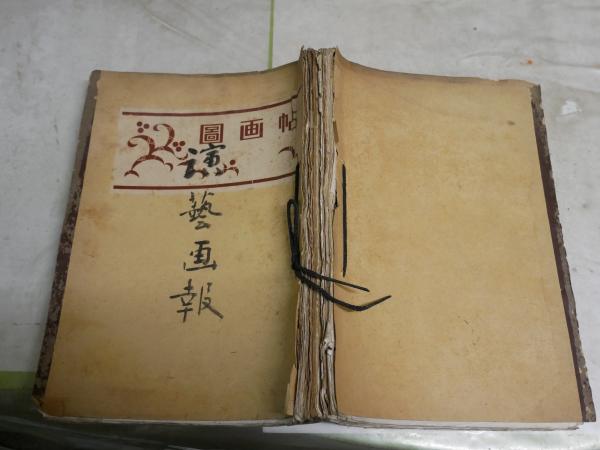 圖画帖
演藝画報